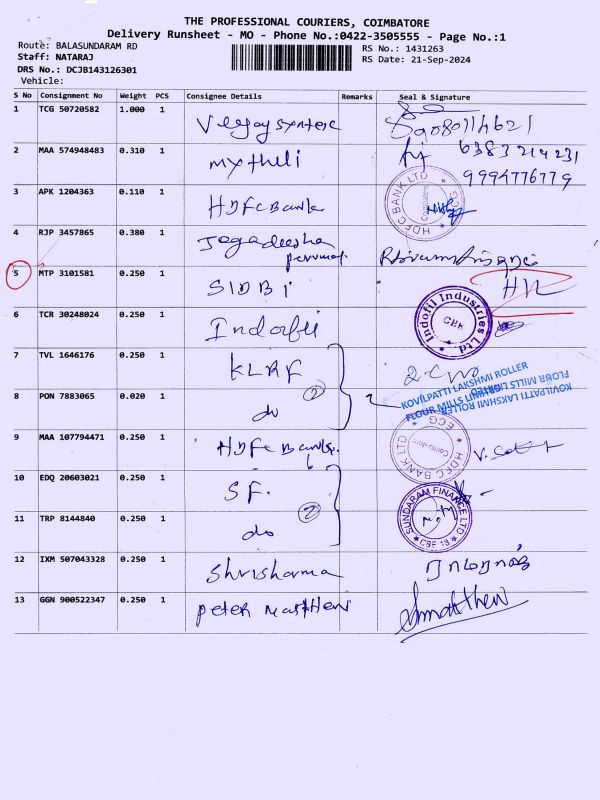 THE PROFESSIONAL COURIERS, COIMBATORE
Delivery Runsheet - MO - Phone No.:0422-3505555 - Page No.:1
Route: BALASUNDARAM RD
RS No.: 1431263
Staff: NATARAJ
RS Date: 21-Sep-2024
DRS No.: DCJB143126301
Vehicle:
S No Consignment No Weight PCS Consignee Details Remarks Seal & Signature
1 TCG 50720582 1.000 1
2 MAA 574948483 0.310 1 Mythili 6383214231
9994776779
3 APK 1204363 0.110 1 HDFC Bank HDFC BANK LTD Coimbatore ECG
4 RJP 3457865 0.380 1 Jegadeesha perumal
5 MTP 3101581 0.250 1 SIDBI
6 TCR 30248024 0.250 1 Indofil Indofil Industries Ltd CBE
7 TVL 1646176 0.250 1 KLRF
KOVILPATTI LAKSHMI ROLLER
FLOUR MILLS LIMITED
KOVILPATTI LAKSHMI ROLLER
FLOUR MILLS LIMITED
8 PON 7883065 0.020 1 do 2
9 MAA 107794471 0.250 1 HDFC Bank HDFC BANK LTD Coimbatore ECG
10 EDQ 20603021 0.250 1 SF.
11 TRP 8144840 0.250 1 do 2 SUNDARAM FINANCE LTD CBE 18
12 IXM 507043328 0.250 1 Shrisharma
13 GGN 900522347 0.250 1 Peter Matthew